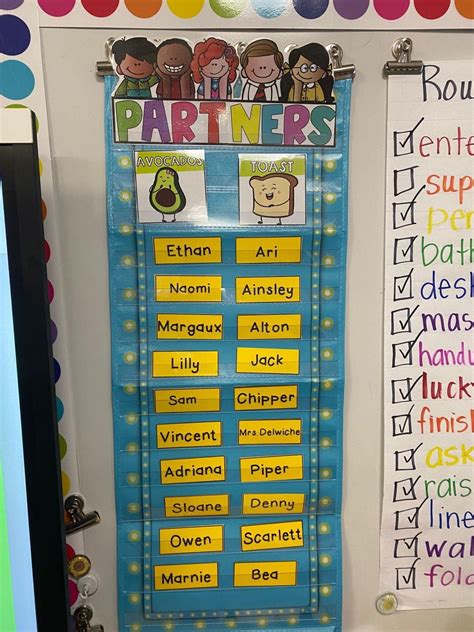 PARTNERS
AVOCADOS TOAST
Ethan Ari
Naomi Ainsley
Margaux Alton
Lilly Jack
Sam Chipper
Vincent Mrs Delwiche
Adriana Piper
Sloane Denny
Owen Scarlett
Marnie Bea
Rou
ente
sup
per
bath
desk
mas
handw
luck
finish
ask
rais
line
wal
fold